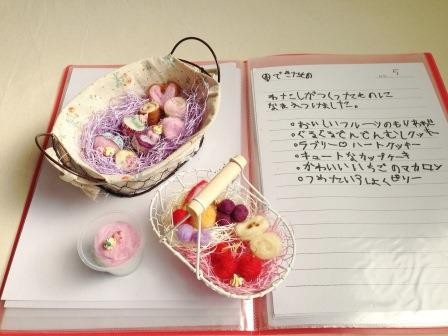 できたもの
No. 5
わたしがつくったものに
なまえつけました。
○おいしいフルーツのもりあわせ
○ぐるぐるでんでんむしクッキー
○ラブリー♡ハートクッキー
○キュートなカップケーキ
○かわいいいちごのマカロン
○つめたい ゼリー